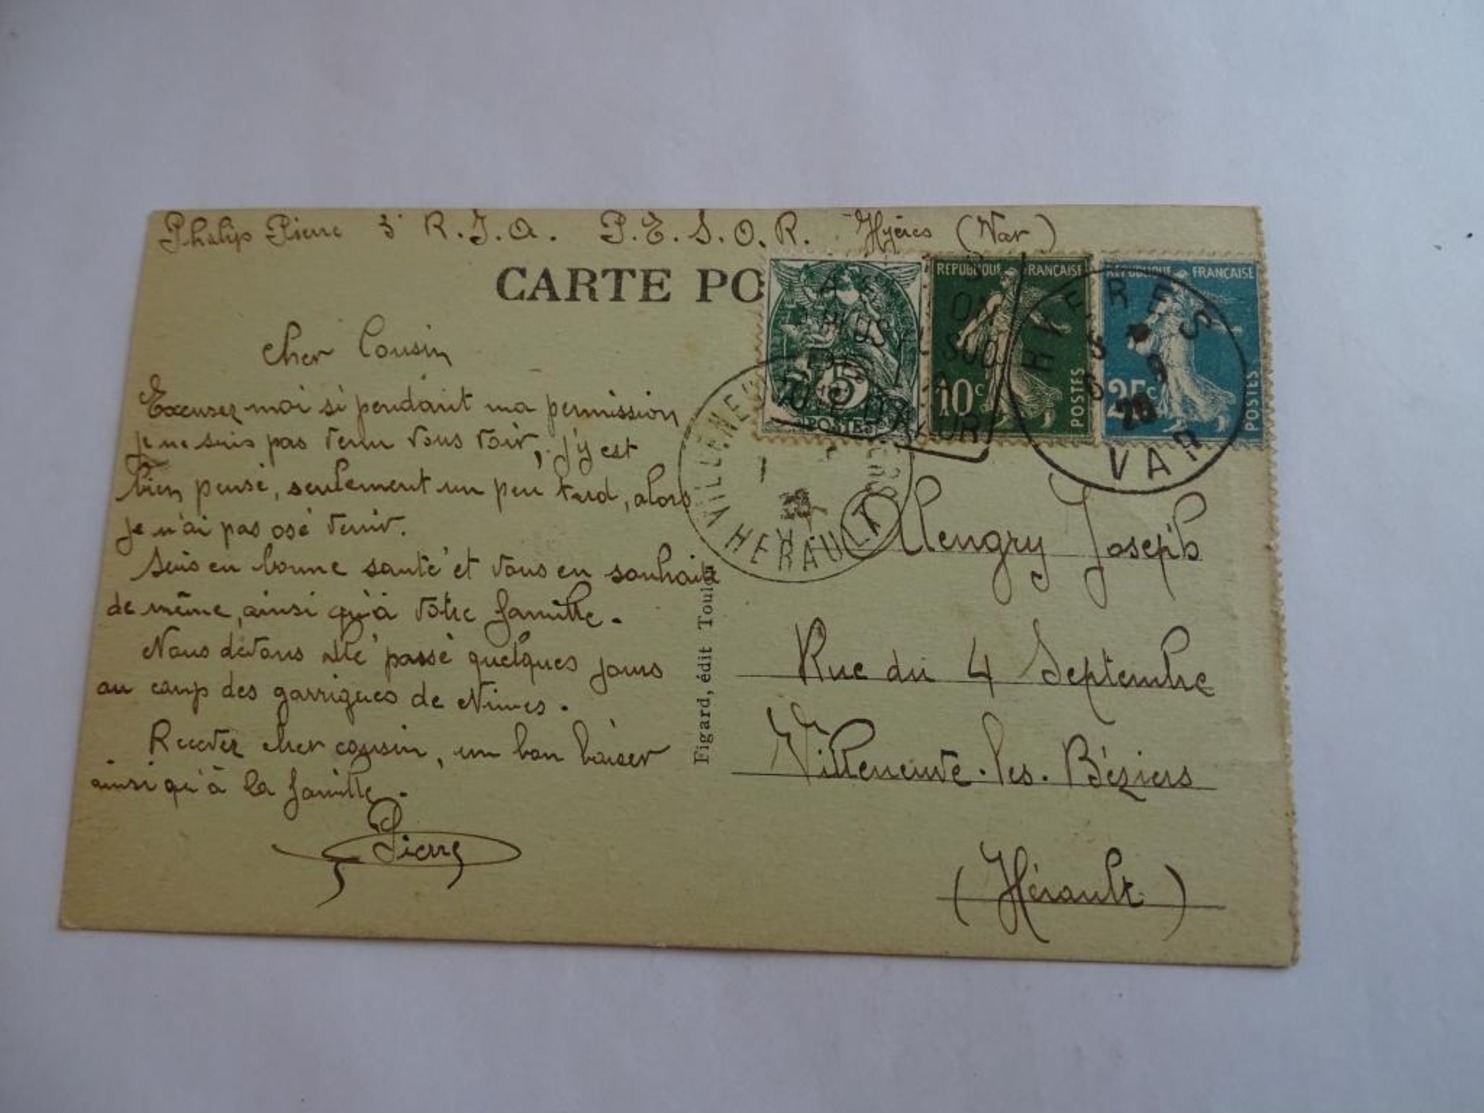 Phalip Pierre 3e R.I.A. P.E.S.O.R. Hyères (Var)
CARTE PO
cher Cousin
Excusez moi si pendant ma permission
je ne suis pas venu vous voir, j'y est
bien pensé, seulement un peu tard, alors
je n'ai pas osé venir.
Suis en bonne santé et vous en souhaite
de même, ainsi qu'à votre famille.
Nous devons être passé quelques jours
au camp des garrigues de Nimes.
Recevez cher cousin, un bon baiser
ainsi qu'à la famille.
Pierre
Figard, édit Toulon
POSTES
5
REPUBLIQUE FRANÇAISE
10c
POSTES
REPUBLIQUE FRANÇAISE
25c
POSTES
HYERES
VAR
VILLENEUVE
HERAULT
Joseph
Rue du 4 Septembre
Villeneuve-les-Béziers
(Hérault)